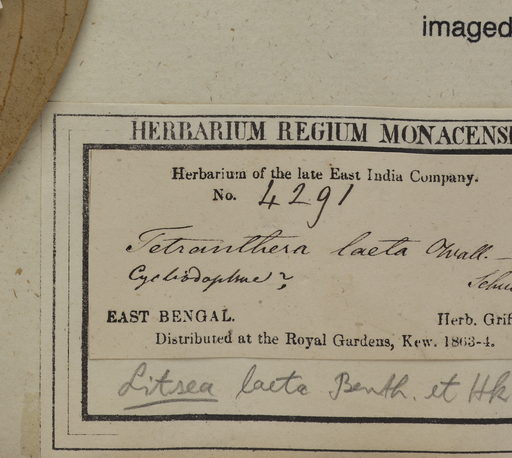 imaged
HERBARIUM REGIUM MONACENS
Herbarium of the late East India Company.
No. 4291
Tetranthera laeta Wall. —
Cyclidodaphne?
EAST BENGAL.
Herb. Grif
Distributed at the Royal Gardens, Kew. 1863-4.
Litsea laeta Benth. et Hk